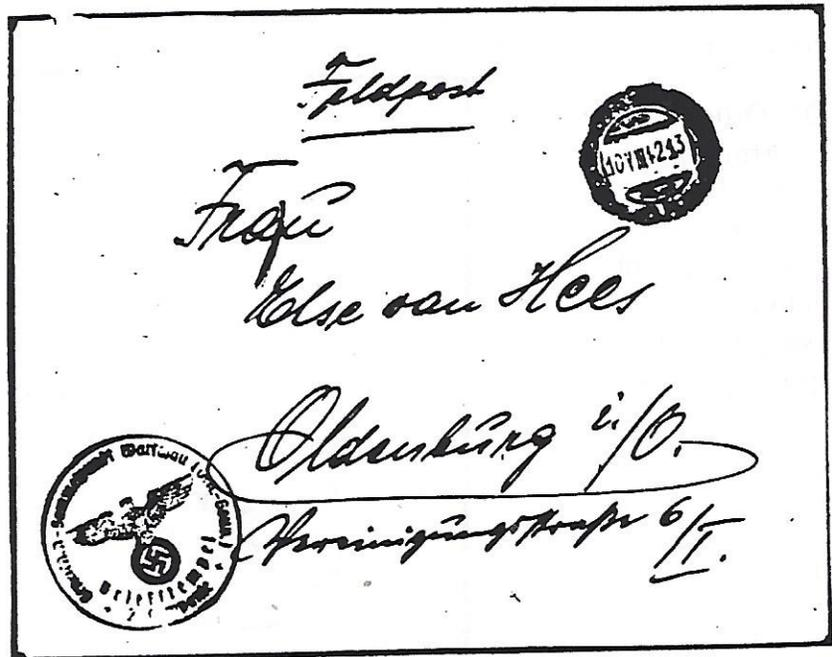 Feldpost
10 VIII 42 13
Frau
Else van Hees
Oldenburg i/O.
Vereinigungsstraße 6/I.
Warschau
Briefstempel